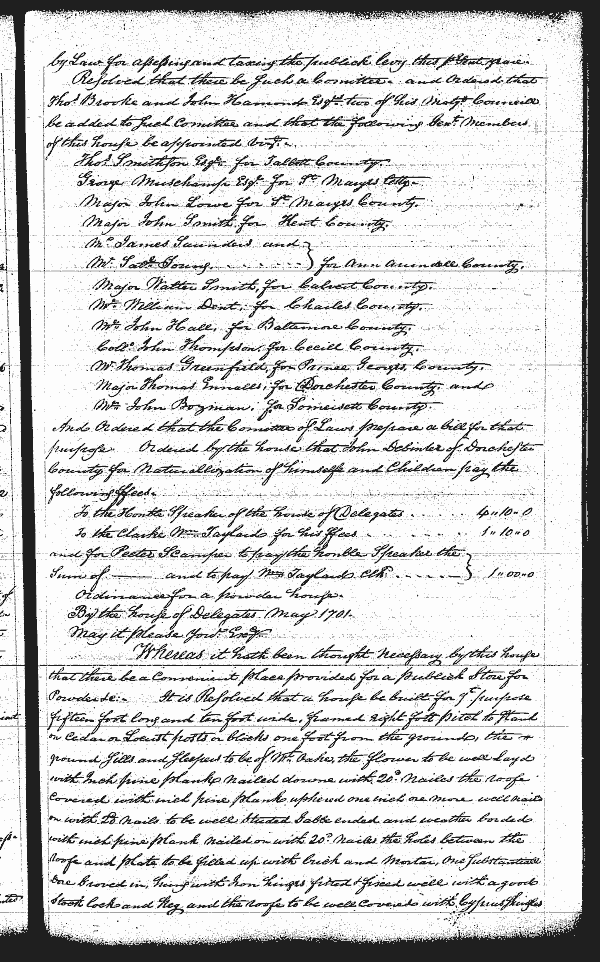 by Law for assessing and taxing the publick levy this pstent year.
Resolved that there be Such a Comittee. and Ordered that
Thos. Brooke and John Hamond Esqrs. two of his Matys. Councill
be added to such Comittee and that the following Gent. Members
of this house be appointed vizt.
Thos. Smithson Esqr. for Talbott County.
George Muschamp Esqr. for St. Maryes Cty.
Major John Lowe for St. Maryes County.
Major John Smith for Kent County.
Mr. James Saunders and
Mr. Saml. Young. } for Ann Arundell County.
Major Walter Smith, for Calvert County.
Mr. William Dent, for Charles County.
Mr. John Hall, for Baltemore County.
Coll. John Thompson, for Cecill County.
Mr. Thomas Greenfield, for Prince Georges, County.
Major Thomas Ennalls, for Dorchester County and
Mr. John Bozman, for Somersett County.
And Ordered that the Comittee of Laws prepare a bill for that
purpose Ordered by the house that John of Dorchester
County for Naturallization of himselfe and Children pay the
following ffees.
To the Honble Speaker of the house of Delegates . . . 4..10..0
To the Clarke Wm. Taylard for his ffees . . . 1..10..0
and for Peeter to pay the honble Speaker the
Sum of —— and to pay Wm. Taylard Clk. . . . } 1..00..0
Ordinance for a powder house.
By the house of Delegates May 1701.
May it please yor. Excy.
Whereas it hath been thought necessary by this house
that there be a Convenient place provided for a publick Store for
Powder &c.. It is Resolved that a house be built for ye. purpose
fifteen foot long and ten foot wide, framed eight foot Pitch to stand
on Cedar or Locust posts or blocks one foot from the ground, the
ground Sills and Sleepers to be of Wt. Oake, the flower to be well layd
with Inch pine plank nailed downe with 20d. Nailes the roofe
Covered with inch pine plank one inch ore more well naild
on with nails to be well Studed Gable ended and weather borded
with inch pine plank nailed on with 20d. Nailes the holes between the
roofe and plate to be filled up with brick and Morter, One Substantiall
Dore Groved in, hung with Iron hinges fitted & fixed well with a good
Stock lock and Key and the roofe to be well Covered with Cyprus Shingles